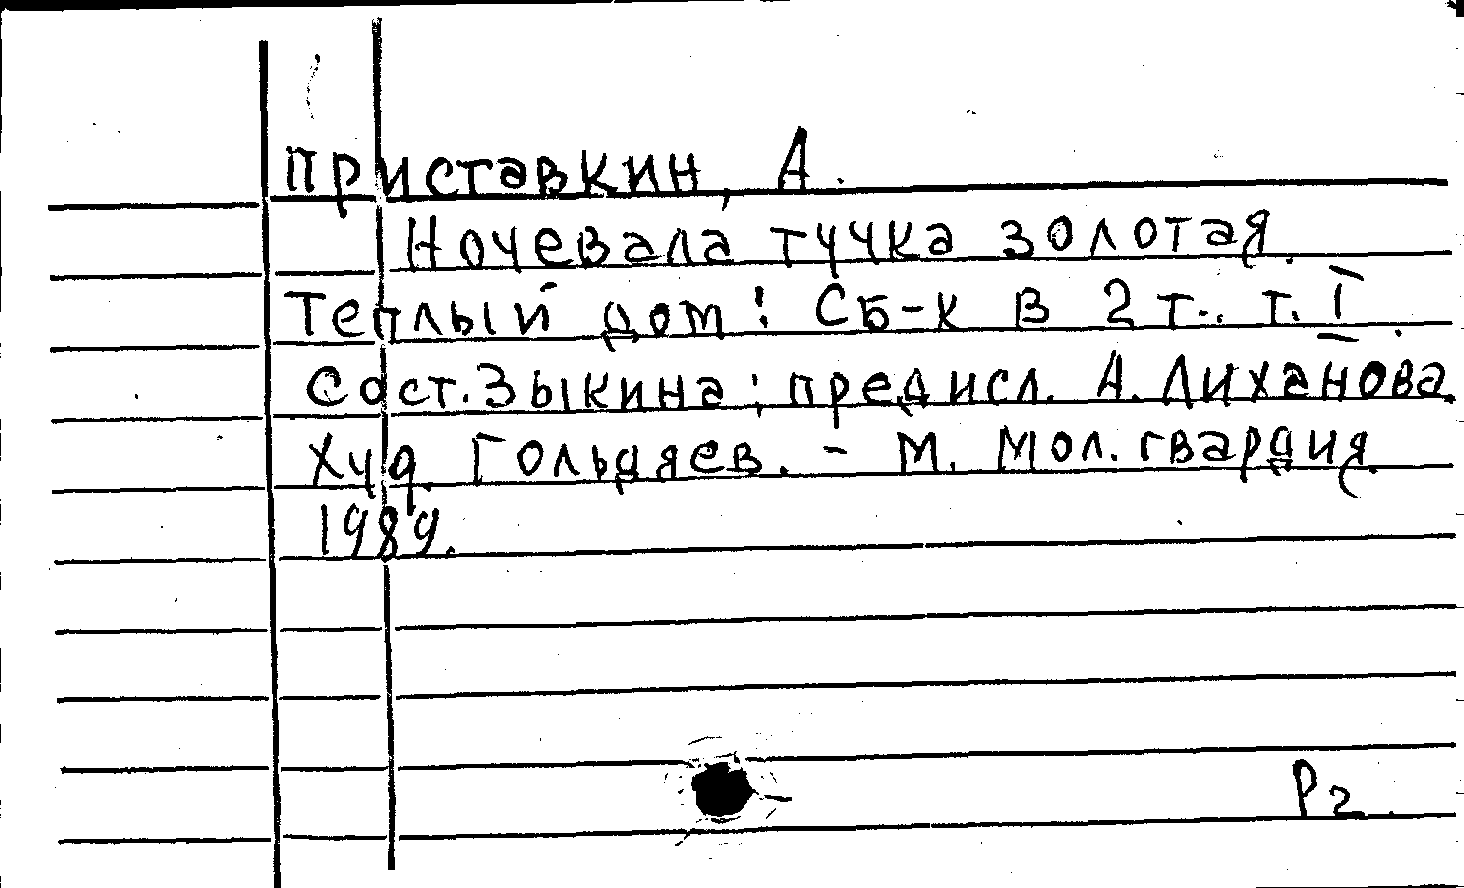 Приставкин, А.
Ночевала тучка золотая.
Теплый дом: Сб-к в 2 т.. т. I.
Сост. Зыкина; предисл. А. Лиханова.
Худ. Гольдяев. - М. Мол. гвардия.
1989.
Р2